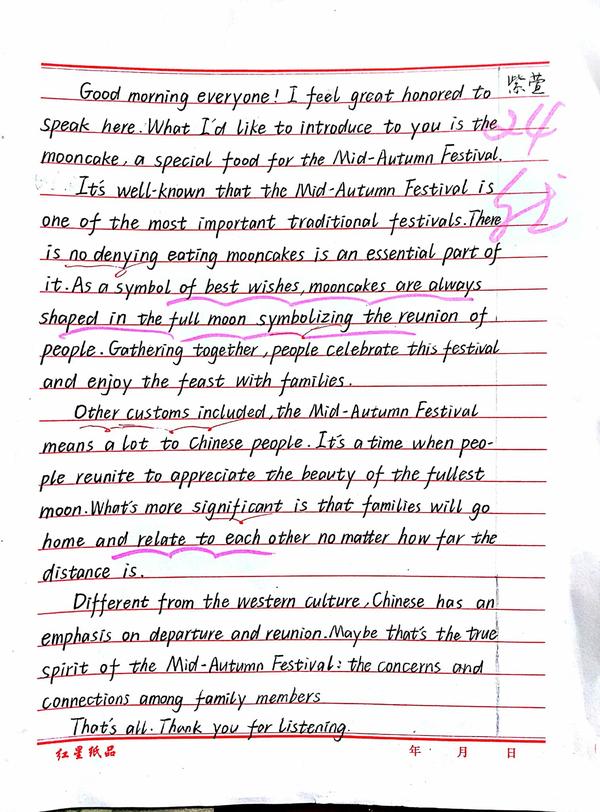 紫萱
Good morning everyone! I feel great honored to
speak here. What I'd like to introduce to you is the
24
mooncake, a special food for the Mid-Autumn Festival.
It's well-known that the Mid-Autumn Festival is
one of the most important traditional festivals. There
is no denying eating mooncakes is an essential part of
it. As a symbol of best wishes, mooncakes are always
shaped in the full moon symbolizing the reunion of
people. Gathering together, people celebrate this festival
and enjoy the feast with families.
Other customs included, the Mid-Autumn Festival
means a lot to Chinese people. It's a time when peo-
ple reunite to appreciate the beauty of the fullest
moon. What's more significant is that families will go
home and relate to each other no matter how far the
distance is.
Different from the western culture, Chinese has an
emphasis on departure and reunion. Maybe that's the true
spirit of the Mid-Autumn Festival: the concerns and
connections among family members
That's all. Thank you for listening.
红星纸品 年 月 日